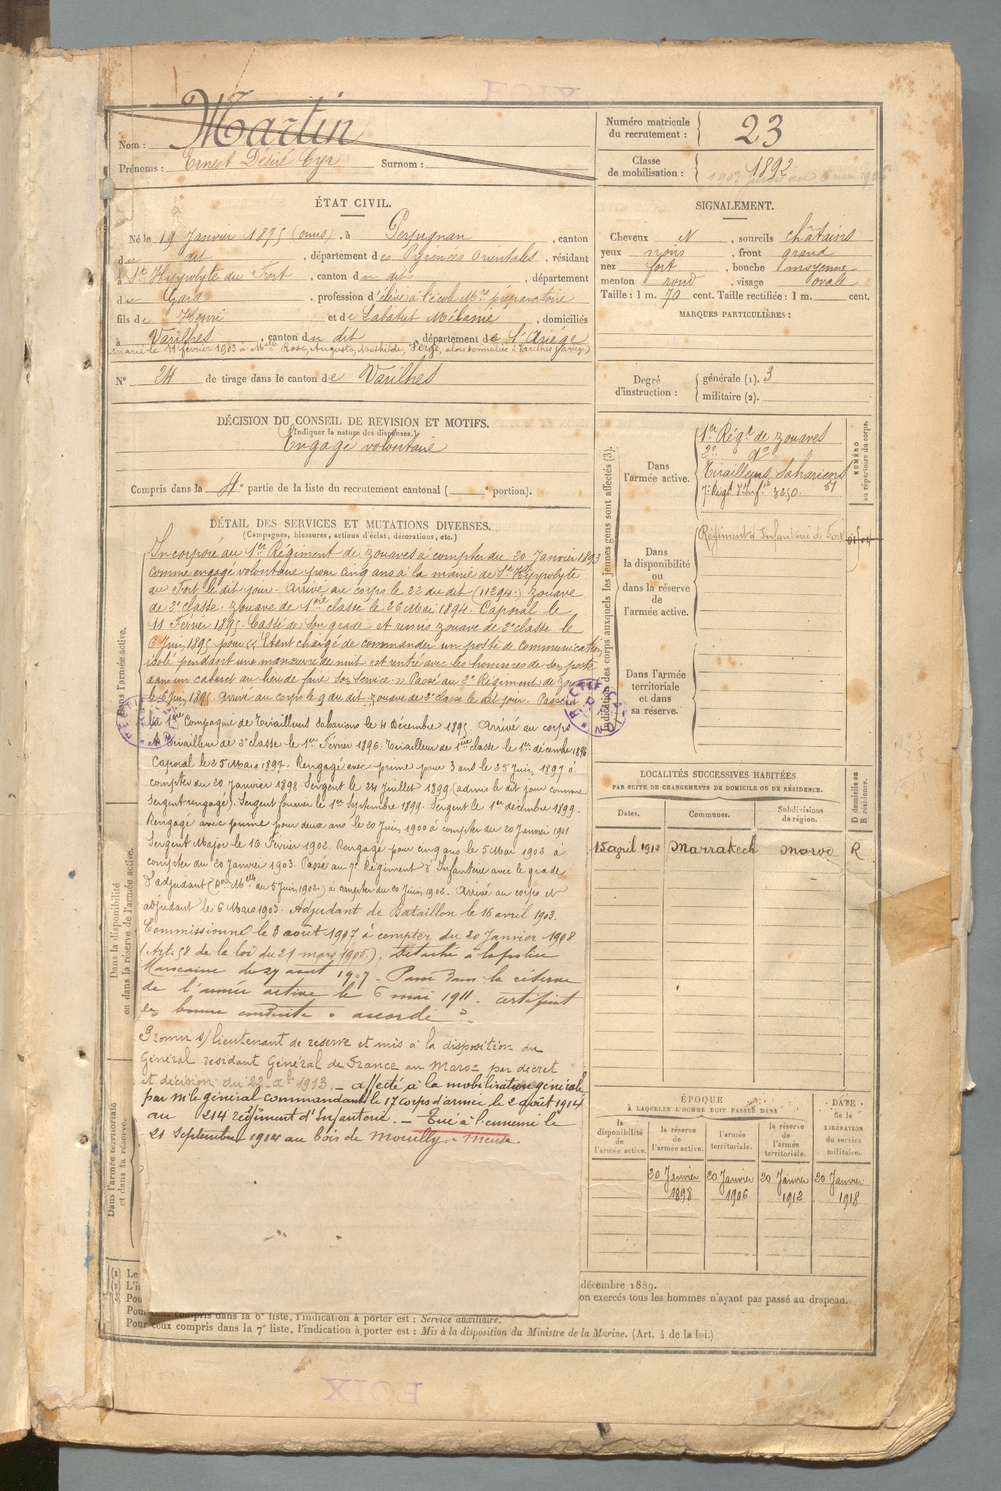 FOIX
Nom : Martin
Prénoms : Ernest Désiré Cyr Surnom :
Numéro matricule
du recrutement : 23
Classe
de mobilisation : 1892
ÉTAT CIVIL.
Né le 19 Janvier 1875 (omis), à Perpignan, canton
du dit, département des Pyrénées Orientales, résidant
à St Hyppolyte du Fort, canton du dit, département
du Gard, profession d'élève à l'école Mre préparatoire
fils de Henri et de Labatut Mélanie, domiciliés
à Varilhes, canton du dit, département de l'Ariège
marié le 11 février 1903 à Melle Rose, Augusta, Mathilde,
N° 24 de tirage dans le canton de Varilhes
SIGNALEMENT.
Cheveux N, sourcils châtains
yeux noirs, front grand
nez fort, bouche moyenne
menton rond, visage ovale
Taille : 1 m. 70 cent. Taille rectifiée : 1 m. cent.
MARQUES PARTICULIÈRES :
Degré
d'instruction : générale (1). 3
militaire (2).
DÉCISION DU CONSEIL DE REVISION ET MOTIFS.
(Indiquer la nature des dispenses.)
Engagé volontaire
Compris dans la 4e partie de la liste du recrutement cantonal ( e portion).
DÉTAIL DES SERVICES ET MUTATIONS DIVERSES.
(Campagnes, blessures, actions d'éclat, décorations, etc.)
Incorporé au 1er Régiment de zouaves à compter du 20 Janvier 1893
comme engagé volontaire pour cinq ans à la mairie de St Hyppolyte
du Fort le dit jour. Arrivé au corps le 22 du dit (11294.) zouave
de 2e classe. zouave de 1ère classe le 26 Mai 1894. Caporal le
11 Février 1895. Cassé de son grade et remis zouave de 2e classe le
6 Juin 1895 pour « Etant chargé de commander un poste de communication
isolé pendant une manœuvre de nuit est entré avec les hommes de son poste
dans un cabaret au lieu de faire son service » Passé au 2e Régiment de zouaves
le 6 Juin 1895 Arrivé au corps le 9 du dit. zouave de 2e classe le dit jour. Passé à
la 1ère Compagnie de tirailleurs sahariens le 4 Décembre 1895 Arrivé au corps
et tirailleur de 2e classe le 1er Février 1896. tirailleur de 1ère classe le 1er décembre 1896
Caporal le 25 Mars 1897. Rengagé avec prime pour 3 ans le 25 Juin 1897 à
compter du 20 Janvier 1898. Sergent le 24 Juillet 1899 (admis le dit jour comme
sergent rengagé). Sergent fourrier le 1er Septembre 1899. Sergent le 1er décembre 1899.
Rengagé avec prime pour deux ans le 20 Juin 1900 à compter du 20 Janvier 1901
Sergent Major le 16 Février 1902. Rengagé pour cinq ans le 5 Mai 1902 à
compter du 20 Janvier 1903. Passé au 7e Régiment d'Infanterie avec le grade
d'adjudant du 5 Juin 1902.) à compter du 20 Juin 1902. Arrivé au corps et
adjudant le 6 Mars 1903. Adjudant de Bataillon le 16 avril 1903.
Commissionné le 3 août 1907 à compter du 20 Janvier 1908
(Art. 58 de la loi du 21 mars 1905.), détaché à la police
Marocaine du 27 août 1907. Passé dans la réserve
de l'armée active le 6 mai 1911. certificat
de bonne conduite « accordé ».
Promu s/lieutenant de réserve et mis à la disposition du
Général résidant Général de France au Maroc par décret
et décision du 22 Xbre 1913. _ affecté à la mobilisation générale
par Mr le général commandant le 17 corps d'armée le 2 août 1914
au 214 régiment d'Infanterie. _ Tué à l'ennemi le
21 Septembre 1914 au bois de Mouilly - Meuse.
Dans l'armée active.
Dans la disponibilité
ou dans la réserve de l'armée active.
Dans l'armée territoriale
et dans sa réserve.
RECTIFICATION
Indication des corps auxquels les jeunes gens sont affectés (3).
NUMÉRO
au répertoire du corps.
Dans
l'armée active.
1er Régt de zouaves
2e do
Tirailleurs Sahariens 51
7e Regt d'Infrie 3250.
Dans
la disponibilité
ou
dans la réserve
de
l'armée active.
Régiment d'Infanterie de Foix
Dans l'armée
territoriale
et dans
sa réserve.
LOCALITÉS SUCCESSIVES HABITÉES
PAR SUITE DE CHANGEMENTS DE DOMICILE OU DE RÉSIDENCE.
D domicile ou
R résidence.
Dates. Communes. Subdivisions
de région.
15 avril 1912 Marrakech Maroc R
ÉPOQUE
À LAQUELLE L'HOMME DOIT PASSER DANS
DATE
de la
LIBÉRATION
du service
militaire.
la disponibilité
de
l'armée active.
la réserve
de
l'armée active.
l'armée
territoriale.
la réserve
de
l'armée
territoriale.
20 Janvier 1898 20 Janvier 1906 20 Janvier 1912 20 Janvier 1918
(1) Le
(2) L'in
Pou
décembre 1889.
on exercés tous les hommes n'ayant pas passé au drapeau.
Pour ceux compris dans la 6e liste, l'indication à porter est : Service auxiliaire.
Pour ceux compris dans la 7e liste, l'indication à porter est : Mis à la disposition du Ministre de la Marine. (Art. 4 de la loi.)
FOIX